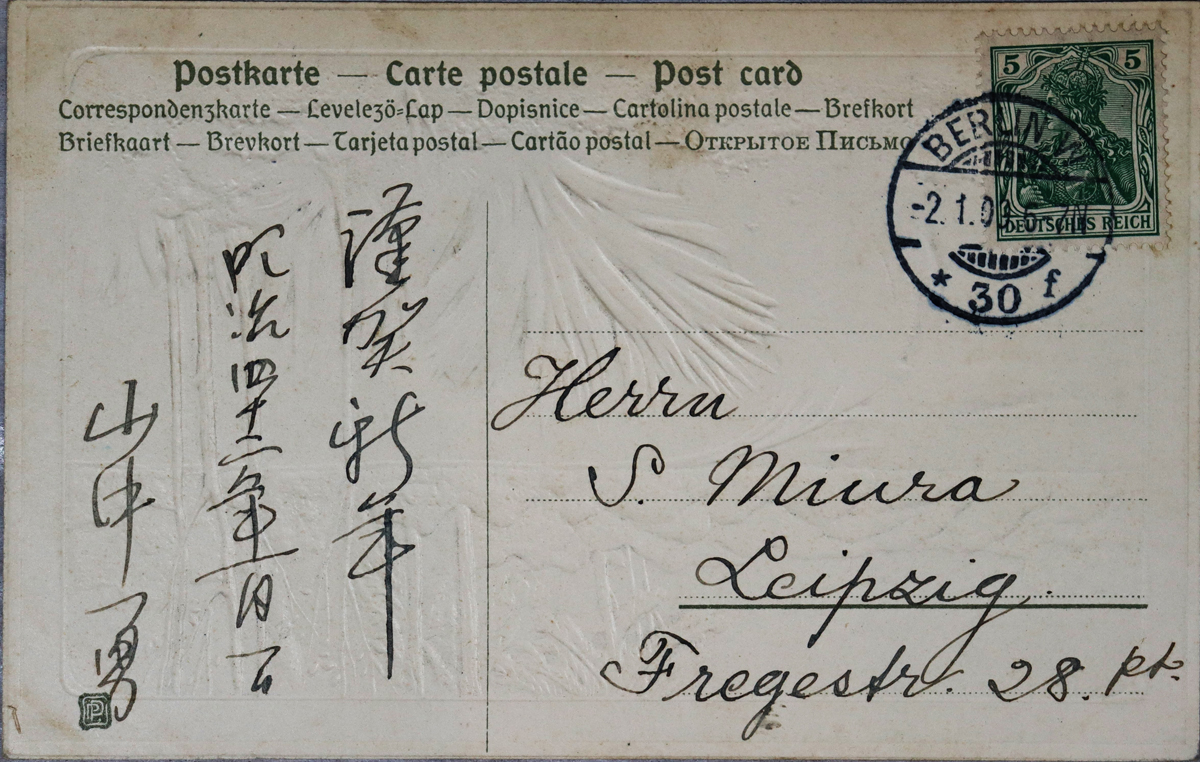 Postkarte — Carte postale — Post card
Correspondenzkarte — Levelező-Lap — Dopisnice — Cartolina postale — Brefkort
Briefkaart — Brevkort — Tarjeta postal — Cartão postal — Открытое Письмо
5 5
DEUTSCHES REICH
BERLIN W
-2.1.09 6-7N
* 30 f
謹賀新年
明治四十二年一月一日
山中勇
Herrn
S. Miura
Leipzig.
Fregestr. 28. pt.
P